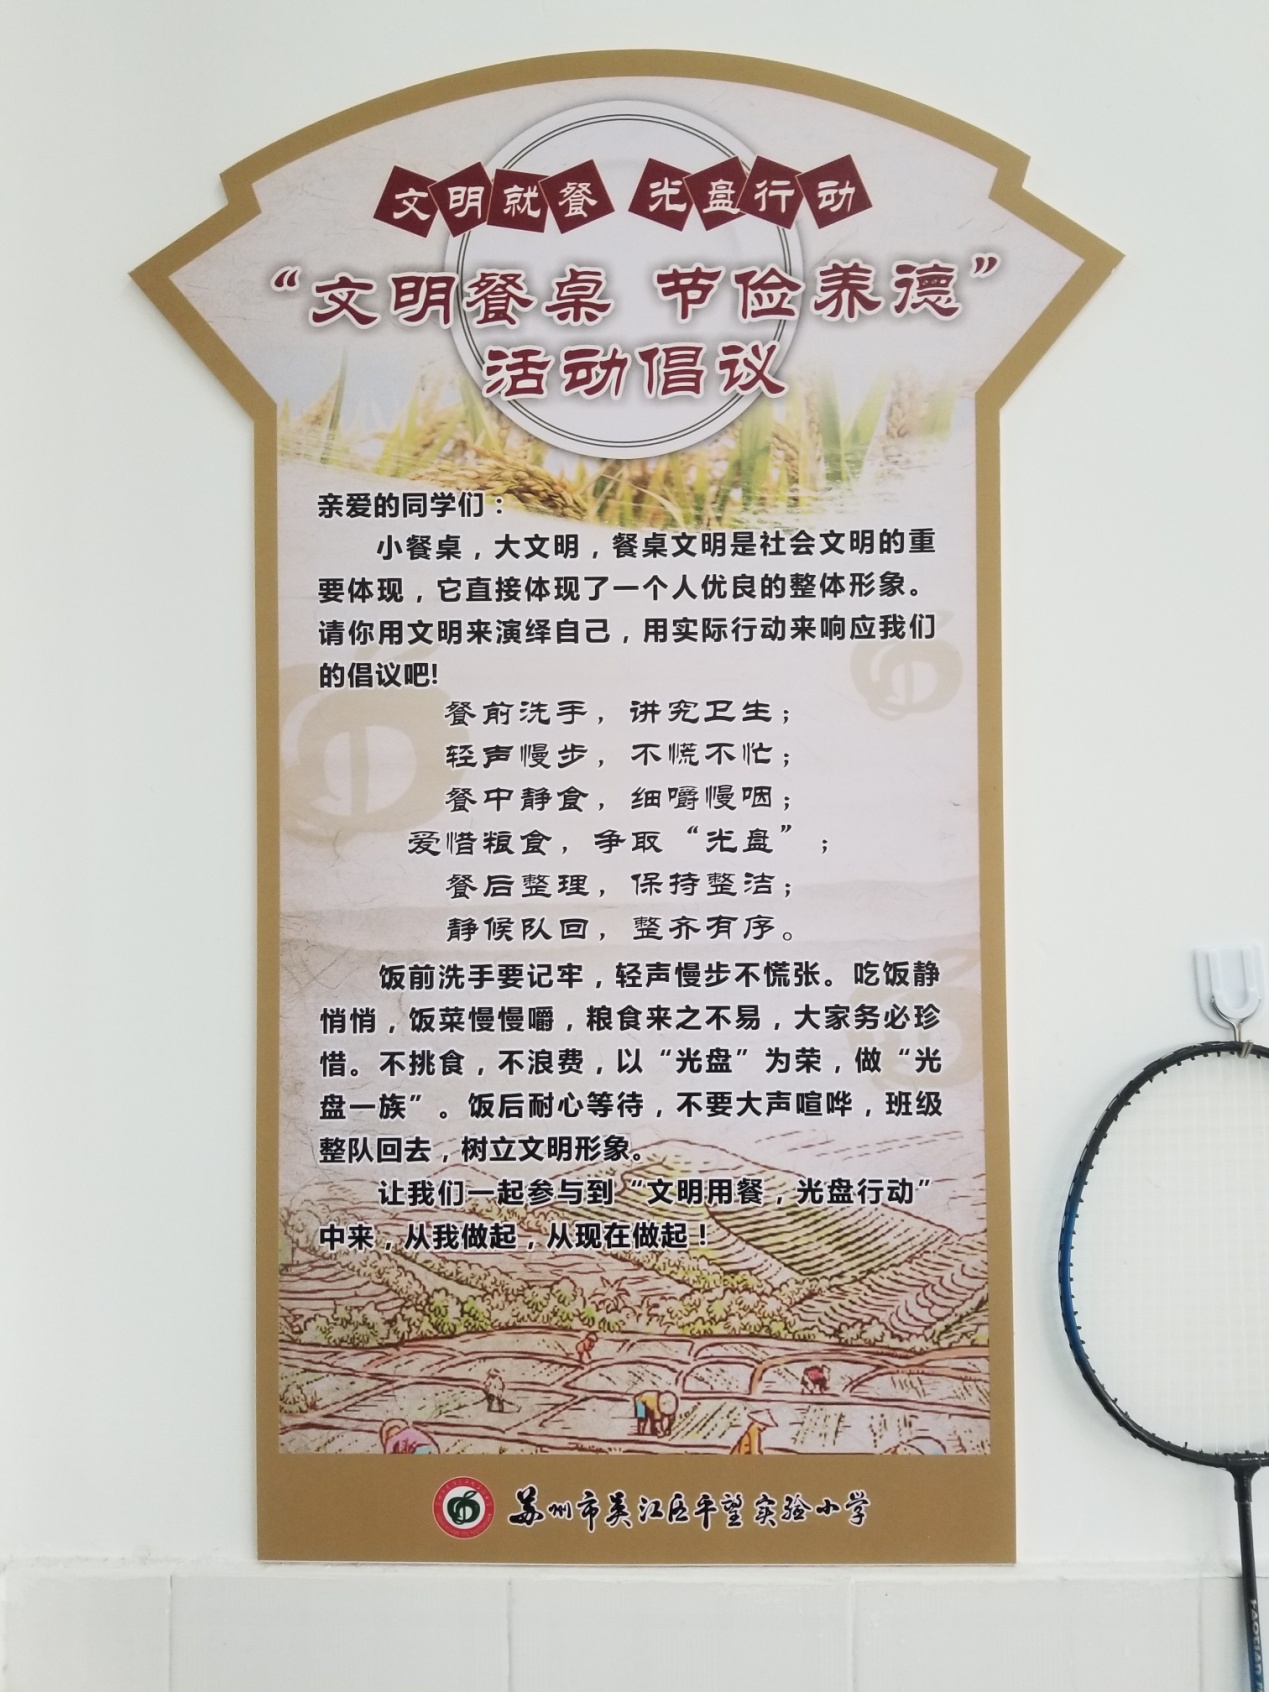 文明就餐 光盘行动
“文明餐桌 节俭养德”
活动倡议
亲爱的同学们：
小餐桌，大文明，餐桌文明是社会文明的重
要体现，它直接体现了一个人优良的整体形象。
请你用文明来演绎自己，用实际行动来响应我们
的倡议吧!
餐前洗手，讲究卫生；
轻声慢步，不慌不忙；
餐中静食，细嚼慢咽；
爱惜粮食，争取“光盘”；
餐后整理，保持整洁；
静候队回，整齐有序。
饭前洗手要记牢，轻声慢步不慌张。吃饭静
悄悄，饭菜慢慢嚼，粮食来之不易，大家务必珍
惜。不挑食，不浪费，以“光盘”为荣，做“光
盘一族”。饭后耐心等待，不要大声喧哗，班级
整队回去，树立文明形象。
让我们一起参与到“文明用餐，光盘行动”
中来，从我做起，从现在做起！
苏州市吴江区平望实验小学